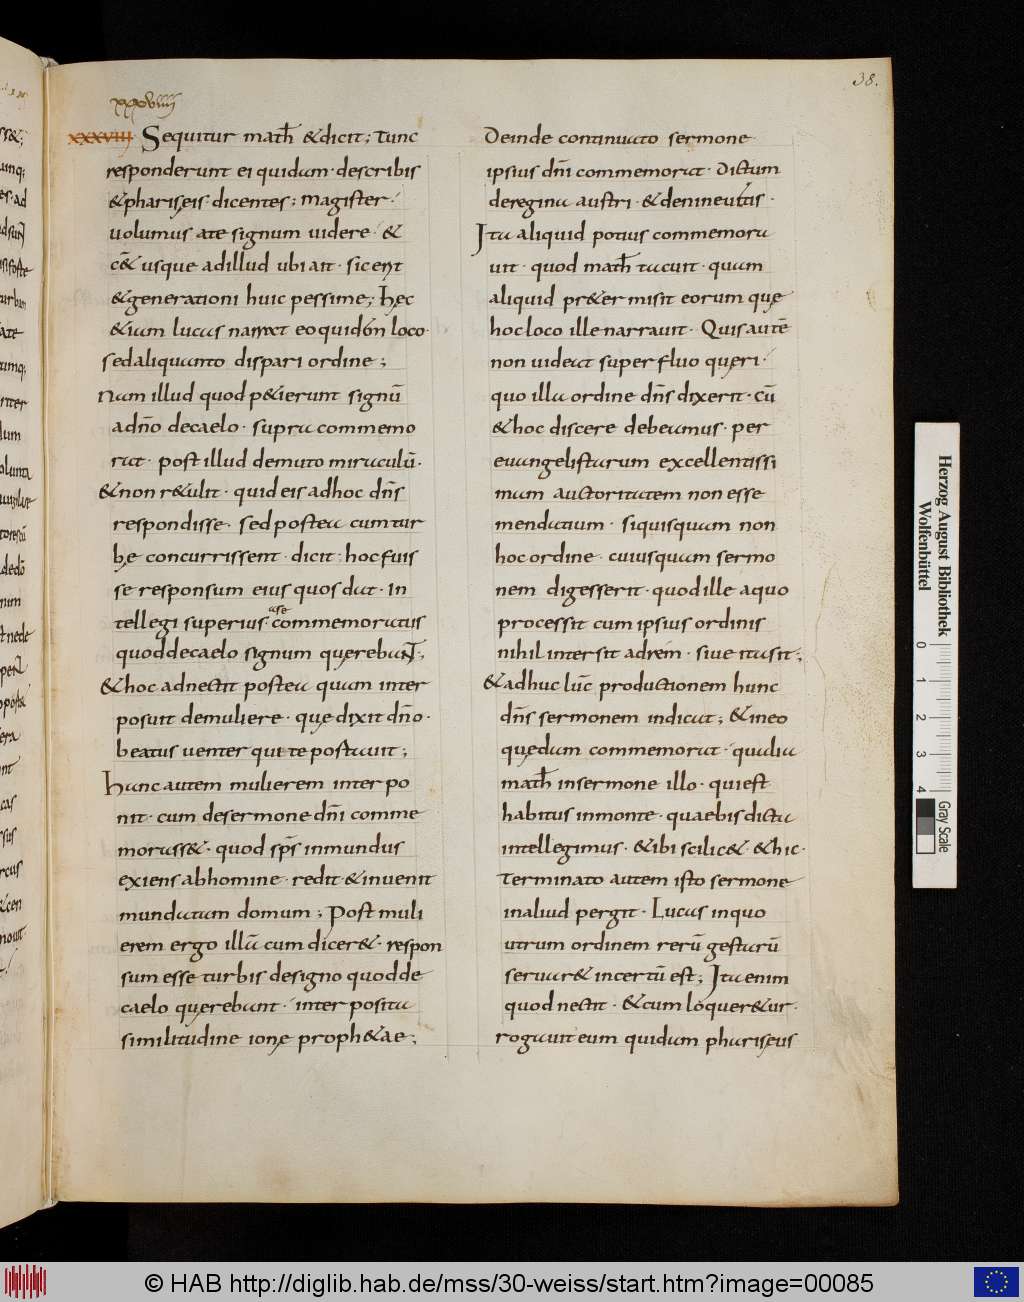 38.
xxxviiii
XXXVIII Sequitur math̅ &dicit; Tunc
responderunt ei quidam· describis
&phariseis· dicentes; magister·
uolumus ate signum uidere· &
c& usque adillud ubi ait· sicent
&generationi huic pessime; hęc
&iam lucas narrat eo quidem loco·
sedaliquanto dispari ordine;
Nam illud quod p&ierunt signū
adn̄o decaelo· supra commemo
rat· post illud demuto miraculū·
&non r&ulit· quid eis adhoc dn̄s
respondisse· sed postea cumtur
bę concurrissent· dicit· hoc fuis
se responsum eius quos dat· in
tellegi superius· ase commemoratus
quoddecaelo signum quęrebant;
&hoc adnectit postea quam inter
posuit demuliere· quę dixit dn̄o·
beatus uenter qui te postauit;
hunc autem mulierem inter po
nit· cum desermone dn̄i comme
morass&· quod sp̄s inmundus
exiens abhomine· redit &inuenit
mundatum domum; Post muli
erem ergo illā cum dicer&· respon
sum esse turbis designo quodde
caelo quęrebant· inter posita
similitudine ionę proph&ae;
Deinde continuato sermone
ipsius dn̄i commemorat· Dictum
deregina austri· &denineuitis·
Ita aliquid potius commemora
uit· quod math̅ tacuit· quam
aliquid pr&er misit eorum quę
hoc loco ille narrauit· Quis autē
non uideat super fluo quęri·
quo illa ordine dn̄s dixerit· cū
&hoc discere debeamus· per
euangelistarum excellentissi
mam auctoritatem non esse
mendatium· siquisquam non
hoc ordine· cuiusquam sermo
nem digesserit· quod ille aquo
processit cum ipsius ordinis
nihil intersit adrem· siue itasit;
&adhuc luc̄ productionem hunc
dn̄s sermonem indicat; &ineo
quędam commemorat· qualia
math̅ insermone illo· qui est
habitus inmonte· quaebis dicta
intellegimus· &ibi scilic&· &hic·
Terminato autem isto sermone
inaliud pergit· Lucas inquo
utrum ordinem rerū gestarū
seruar& incertū est; Ita enim
quod nectit· &cum loquer&ur·
rogauit eum quidam phariseus
Herzog August Bibliothek
Wolfenbüttel
0 1 2 3 4
Gray Scale
© HAB http://diglib.hab.de/mss/30-weiss/start.htm?image=00085